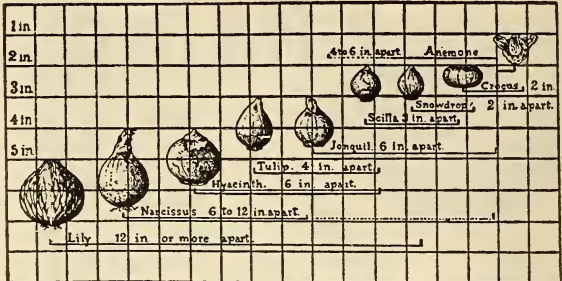 1 in
2 in
4 to 6 in. apart Anemone
3 in
Crocus 2 in.
Snowdrop 2 in. apart.
4 in
Scilla 3 in. apart
5 in
Jonquil. 6 in. apart.
Tulip. 4 in. apart.
Hyacinth. 6 in. apart.
Narcissus 6 to 12 in. apart.
Lily 12 in or more apart.